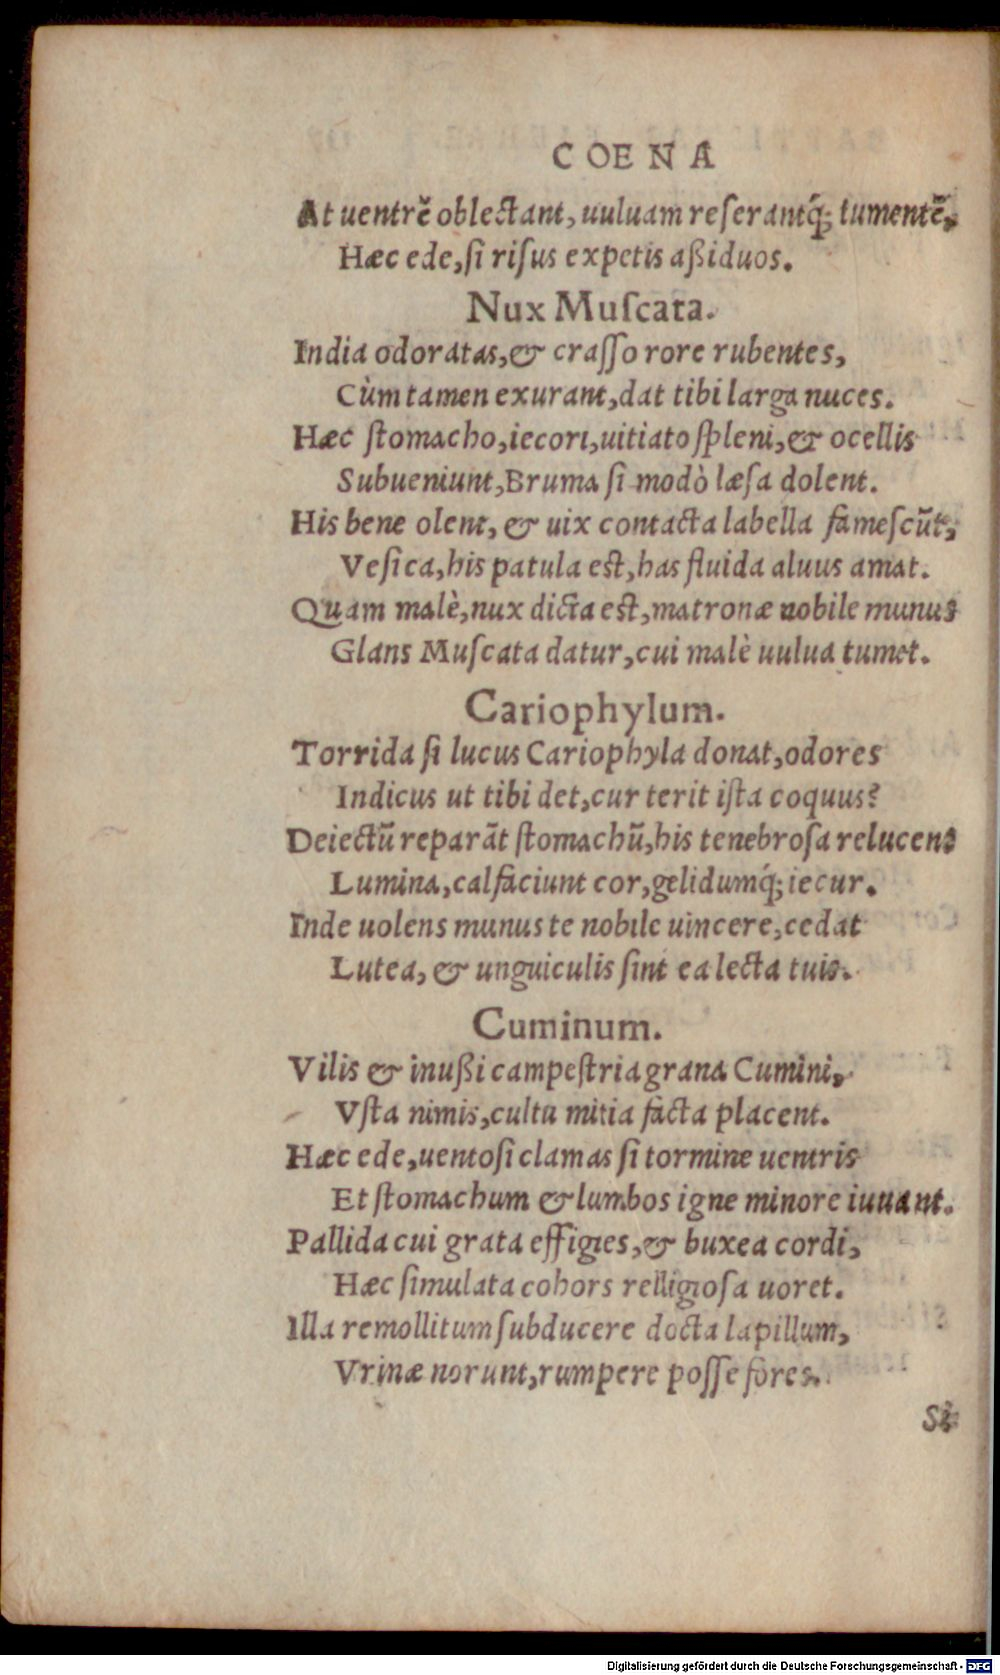 COENA
At uentrẽ oblectant, uuluam reſerantq́; tumentẽ,
Hæc ede, ſi riſus expetis aßiduos.
Nux Muſcata.
India odoratas, & craſſo rore rubentes,
Cùm tamen exurant, dat tibi larga nuces.
Hæc ſtomacho, iecori, uitiato ſpleni, & ocellis
Subueniunt, Bruma ſi modò læſa dolent.
His bene olent, & uix contacta labella fameſcũt,
Veſica, his patula est, has fluida aluus amat.
Quam malè, nux dicta est, matronæ nobile munus
Glans Muſcata datur, cui malè uulua tumet.
Cariophylum.
Torrida ſi lucus Cariophyla donat, odores
Indicus ut tibi det, cur terit iſta coquus?
Deiectũ reparãt ſtomachũ, his tenebroſa relucens
Lumina, calfaciunt cor, gelidumq́; iecur.
Inde uolens munus te nobile uincere, cedat
Lutea, & unguiculis ſint ea lecta tuis.
Cuminum.
Vilis & inußi campeſtria grana Cumini,
Vſta nimis, cultu mitia facta placent.
Hæc ede, uentoſi clamas ſi tormine uentris
Et ſtomachum & lumbos igne minore iuuant.
Pallida cui grata effigies, & buxea cordi,
Hæc ſimulata cohors relligioſa uoret.
Illa remollitum ſubducere docta lapillum,
Vrinæ norunt, rumpere poſſe fores.
Si
Digitalisierung gefördert durch die Deutsche Forschungsgemeinschaft - DFG